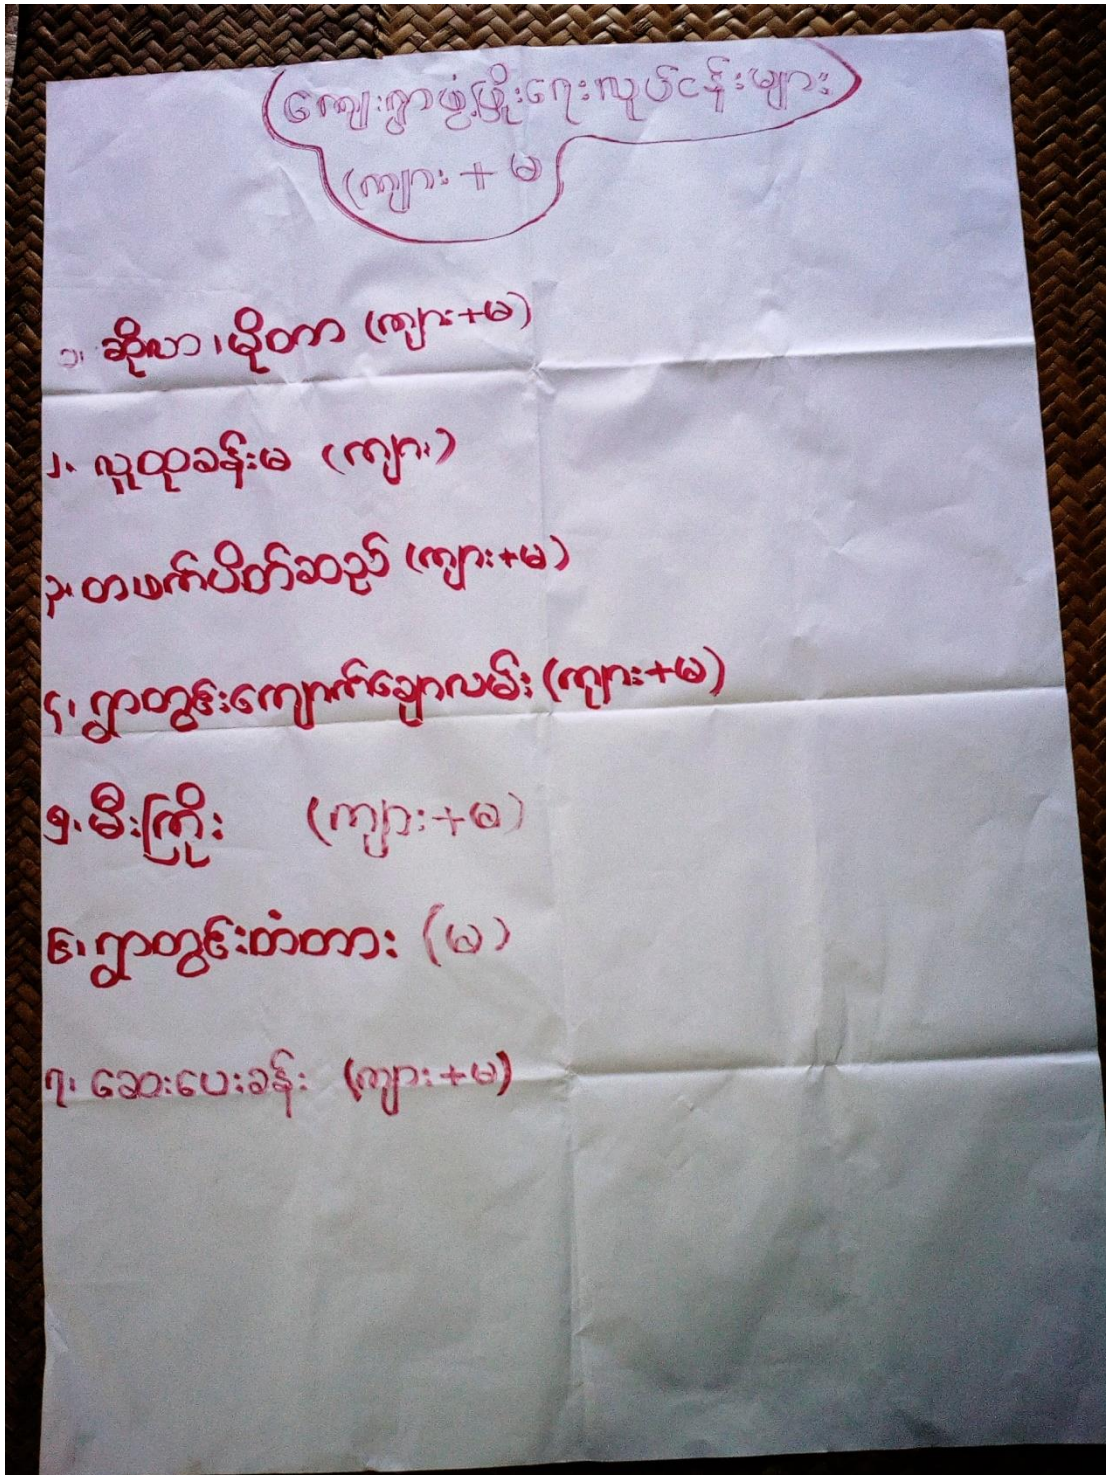 ကျေးရွာဖွံ့ဖြိုးရေးလုပ်ငန်းများ
(ကျား + မ
၁၊ ဆိုလာ၊မိုတာ (ကျား+မ)
၂၊ လူထုခန်းမ (ကျား)
၃၊ တဖက်ပိတ်ဆည် (ကျား+မ)
၄၊ ရွာတွင်းကျောက်ချောလမ်း (ကျား+မ)
၅၊ မီးကြိုး (ကျား+မ)
၆၊ ရွာတွင်းတံတား (မ)
၇၊ ဆေးပေးခန်း (ကျား+မ)